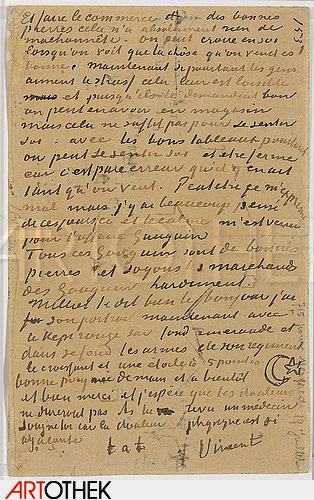 Et faire le commerce d'en des bonnes
pierres cela n'a absolument rien de
malhonnête. on peut croire en soi
lorsqu'on voit que la chose qu'on vend est
bonne. maintenant pourtant les gens
aiment le strass cela leur est loisible
mais et puisqu'ils le demandent bon
on peut en avoir en magasin
mais cela ne suffit pas pour se sentir
soi. avec les bons tableaux pourtant
on peut se sentir soi et être ferme
car c'est pure erreur qu'il y en ait
tant qu'on veut. Peut être je m'exprime
mal mais j'y ai beaucoup pensé
de ces jours ci et le calme m'est venu
pour l'affaire Gauguin
Tous ces Gauguin sont de bonnes
pierres et soyons les marchands
des Gauguin hardiment.
Milliet te dit bien le bonjour j'ai
son portrait maintenant avec
le Kepi rouge sur fond émeraude et
dans ce fond les armes de son régiment
le croissant et une étoile à 5 pointes
bonne poignée de main et à bientôt
et bien merci et j'espère que les douleurs
ne dureront pas As tu revu un médecin
soigne toi car la douleur physique est si
agaçante
t. à t. Vincent
ARTOTHEK